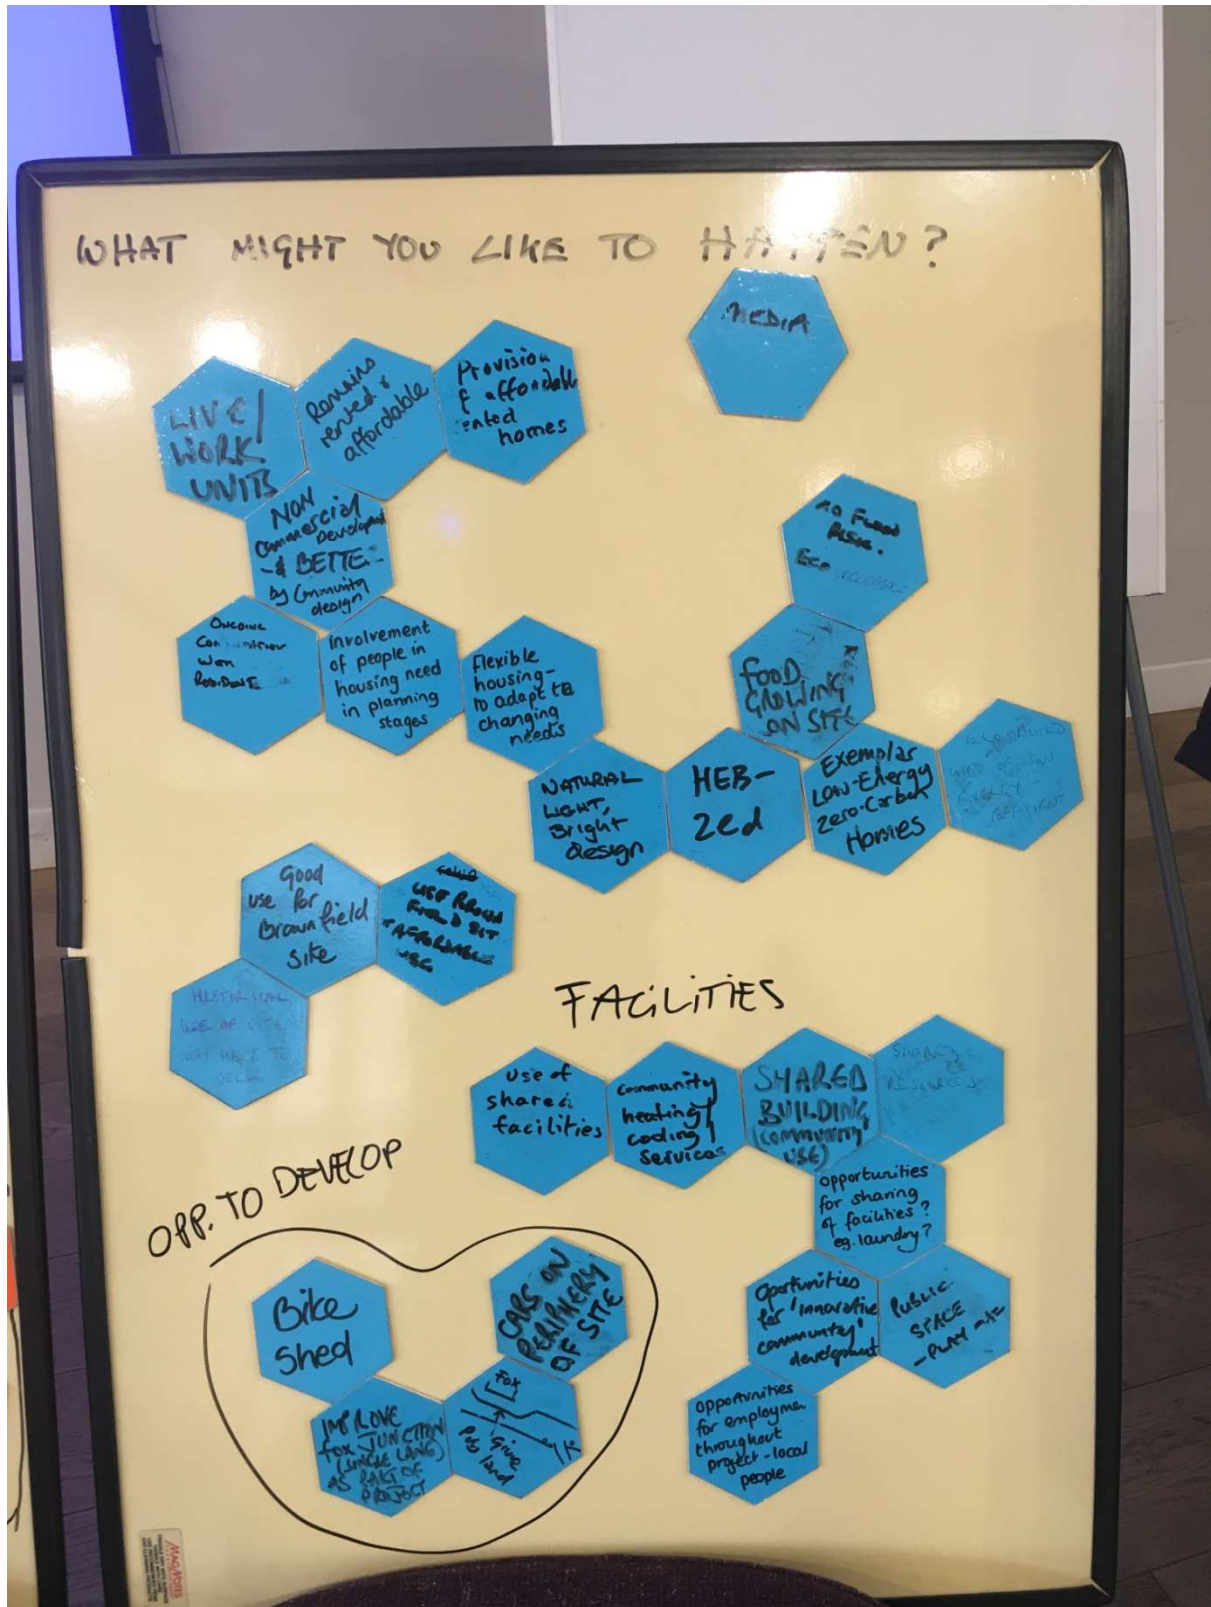 WHAT MIGHT YOU LIKE TO HAPPEN?
MEDIA
LIVE/
WORK
UNITS
Remains
rented &
affordable
Provision
of affordable
rented
homes
NON
Commercial
Development
& BETTE
by Community
design
ONGOING
WITH
Involvement
of people in
housing need
in planning
stages
Flexible
housing-
to adapt to
changing
needs
NATURAL
LIGHT,
Bright
design
HEB-
Zed
NO FLOOD
RISK.
Eco
FOOD
GROWING
ON SITE
Exemplar
Low-Energy
Zero-Carbon
Homes
ENERGY
EFFICIENT
Good
use for
Brownfield
site
USE BROWN
FIELD SIT
AFFORDABLE
USE
HISTORICAL
USE OF SITE
MAY HELP TO
SELL
FACILITIES
Use of
shared
facilities
Community
heating/
cooling/
services
SHARED
BUILDING
(COMMUNITY
USE)
SHARED
RESOURCES
opportunities
for sharing
of facilities?
eg. laundry?
Oportunities
for 'innovative
community'
development
PUBLIC
SPACE
- PLAY
Opportunities
for employmen
throughout
project - local
people
OPP. TO DEVELOP
Bike
Shed
CARS ON
PERIPHERY
OF SITE
IMPROVE
FOX JUNCTION
(SINGLE LANE)
AS PART OF
PROJECT
FOX
Give
land
MAGNOTES